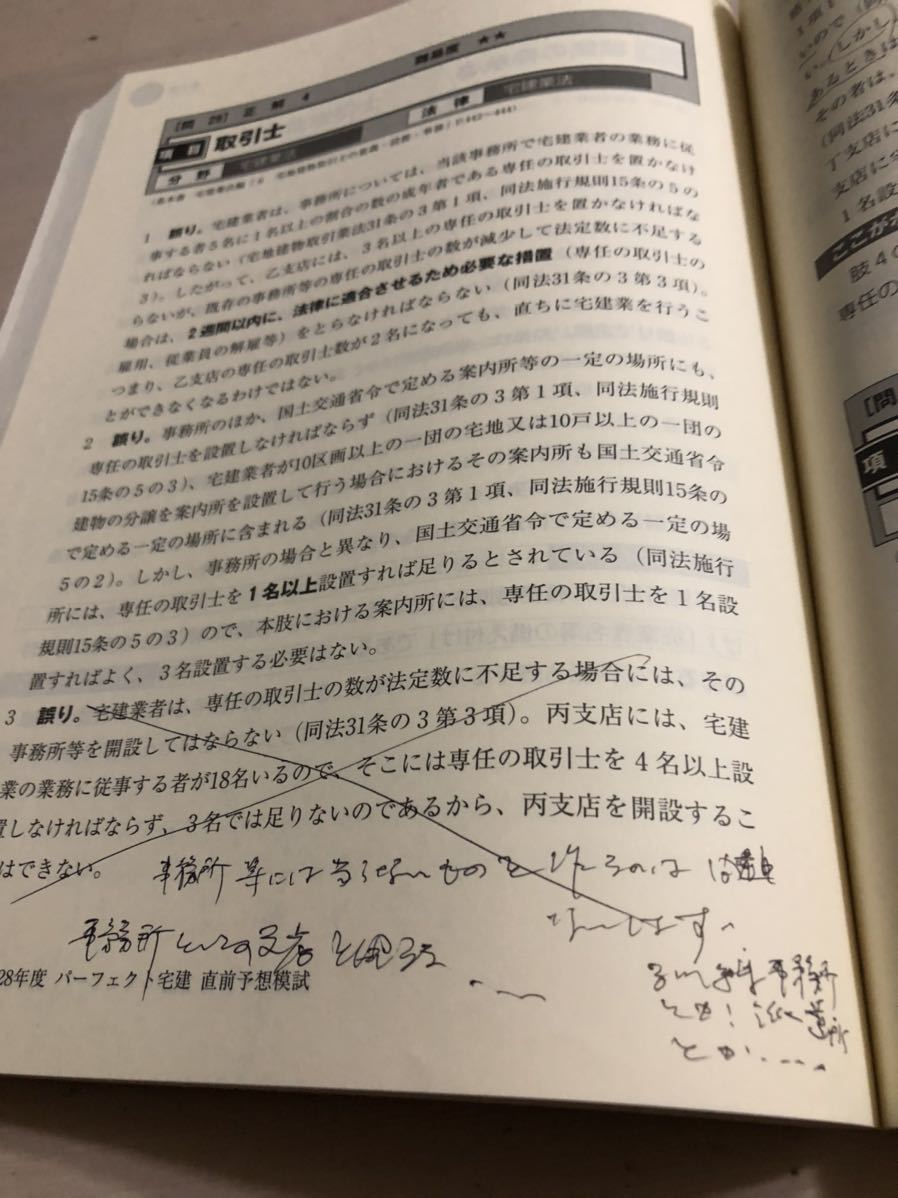 [問 28] 正解 4
難易度 ★★
項目 取引士
分野 宅建業法
法律 宅建業法
1 誤り。宅建業者は、事務所については、当該事務所で宅建業者の業務に従
事する者5名に1名以上の割合の数の成年者である専任の取引士を置かなけ
ればならない（宅地建物取引業法31条の3第1項、同法施行規則15条の5の
3）。したがって、乙支店には、3名以上の専任の取引士を置かなければな
らないが、既存の事務所等の専任の取引士の数が減少して法定数に不足する
場合は、2週間以内に、法律に適合させるため必要な措置（専任の取引士の
雇用、従業員の解雇等）をとらなければならない（同法31条の3第3項）。
つまり、乙支店の専任の取引士数が2名になっても、直ちに宅建業を行うこ
とができなくなるわけではない。
2 誤り。事務所のほか、国土交通省令で定める案内所等の一定の場所にも、
専任の取引士を設置しなければならず（同法31条の3第1項、同法施行規則
15条の5の3）、宅建業者が10区画以上の一団の宅地又は10戸以上の一団の
建物の分譲を案内所を設置して行う場合におけるその案内所も国土交通省令
で定める一定の場所に含まれる（同法31条の3第1項、同法施行規則15条の
5の2）。しかし、事務所の場合と異なり、国土交通省令で定める一定の場
所には、専任の取引士を1名以上設置すれば足りるとされている（同法施行
規則15条の5の3）ので、本肢における案内所には、専任の取引士を1名設
置すればよく、3名設置する必要はない。
3 誤り。宅建業者は、専任の取引士の数が法定数に不足する場合には、その
事務所等を開設してはならない（同法31条の3第3項）。丙支店には、宅建
業の業務に従事する者が18名いるので、そこには専任の取引士を4名以上設
置しなければならず、3名では足りないのであるから、丙支店を開設するこ
はできない。
事務所等には当らないものを作るのは
事務所としての支店
28年度 パーフェクト宅建 直前予想模試
とか
1項
いので
しかし
あるときは
その者は、
（同法31条
丁支店に
支店に
1名設
ここがポ
肢4の
専任の
[問
項